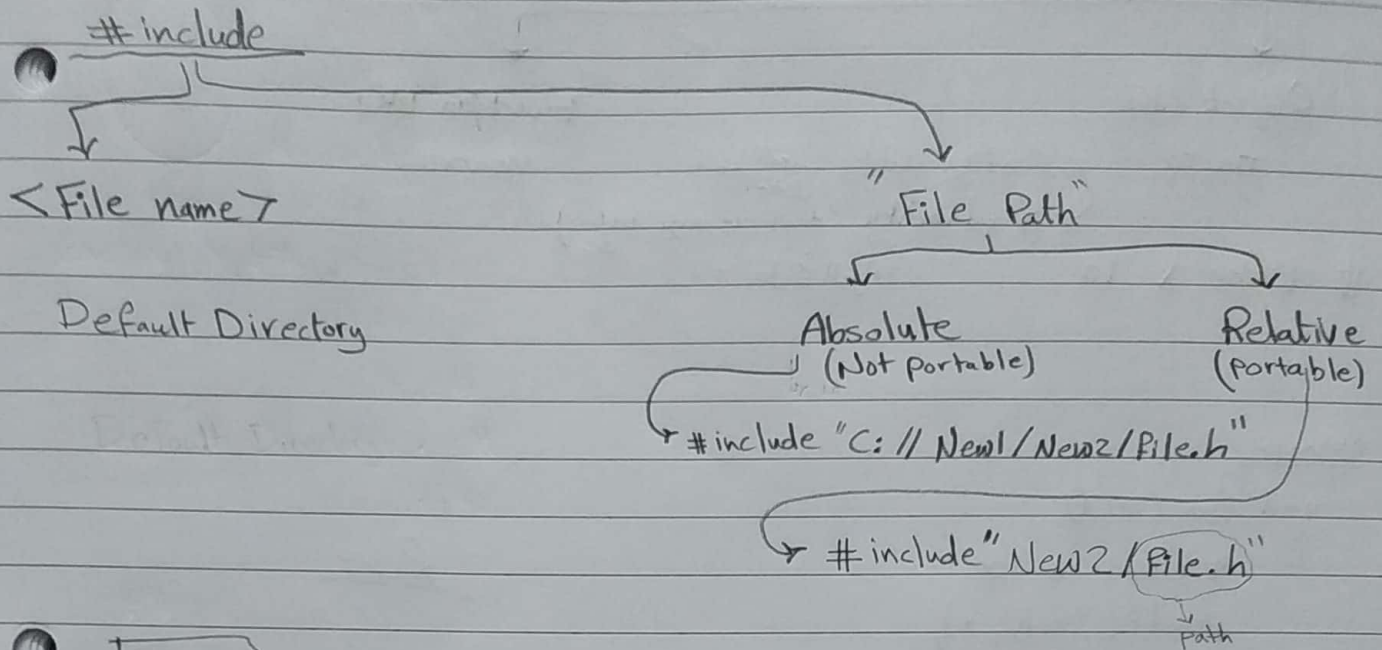 #include
<File name>
"File Path"
Default Directory
Absolute
(Not portable)
Relative
(portable)
#include "C://New1/New2/file.h"
#include "New2/file.h"
path